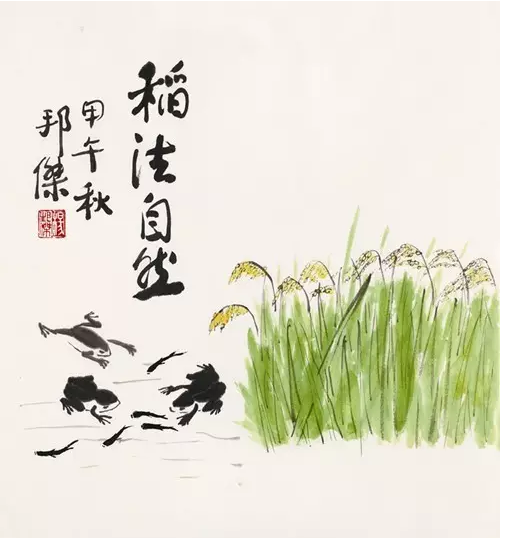 稻法自然
甲午秋
邦傑